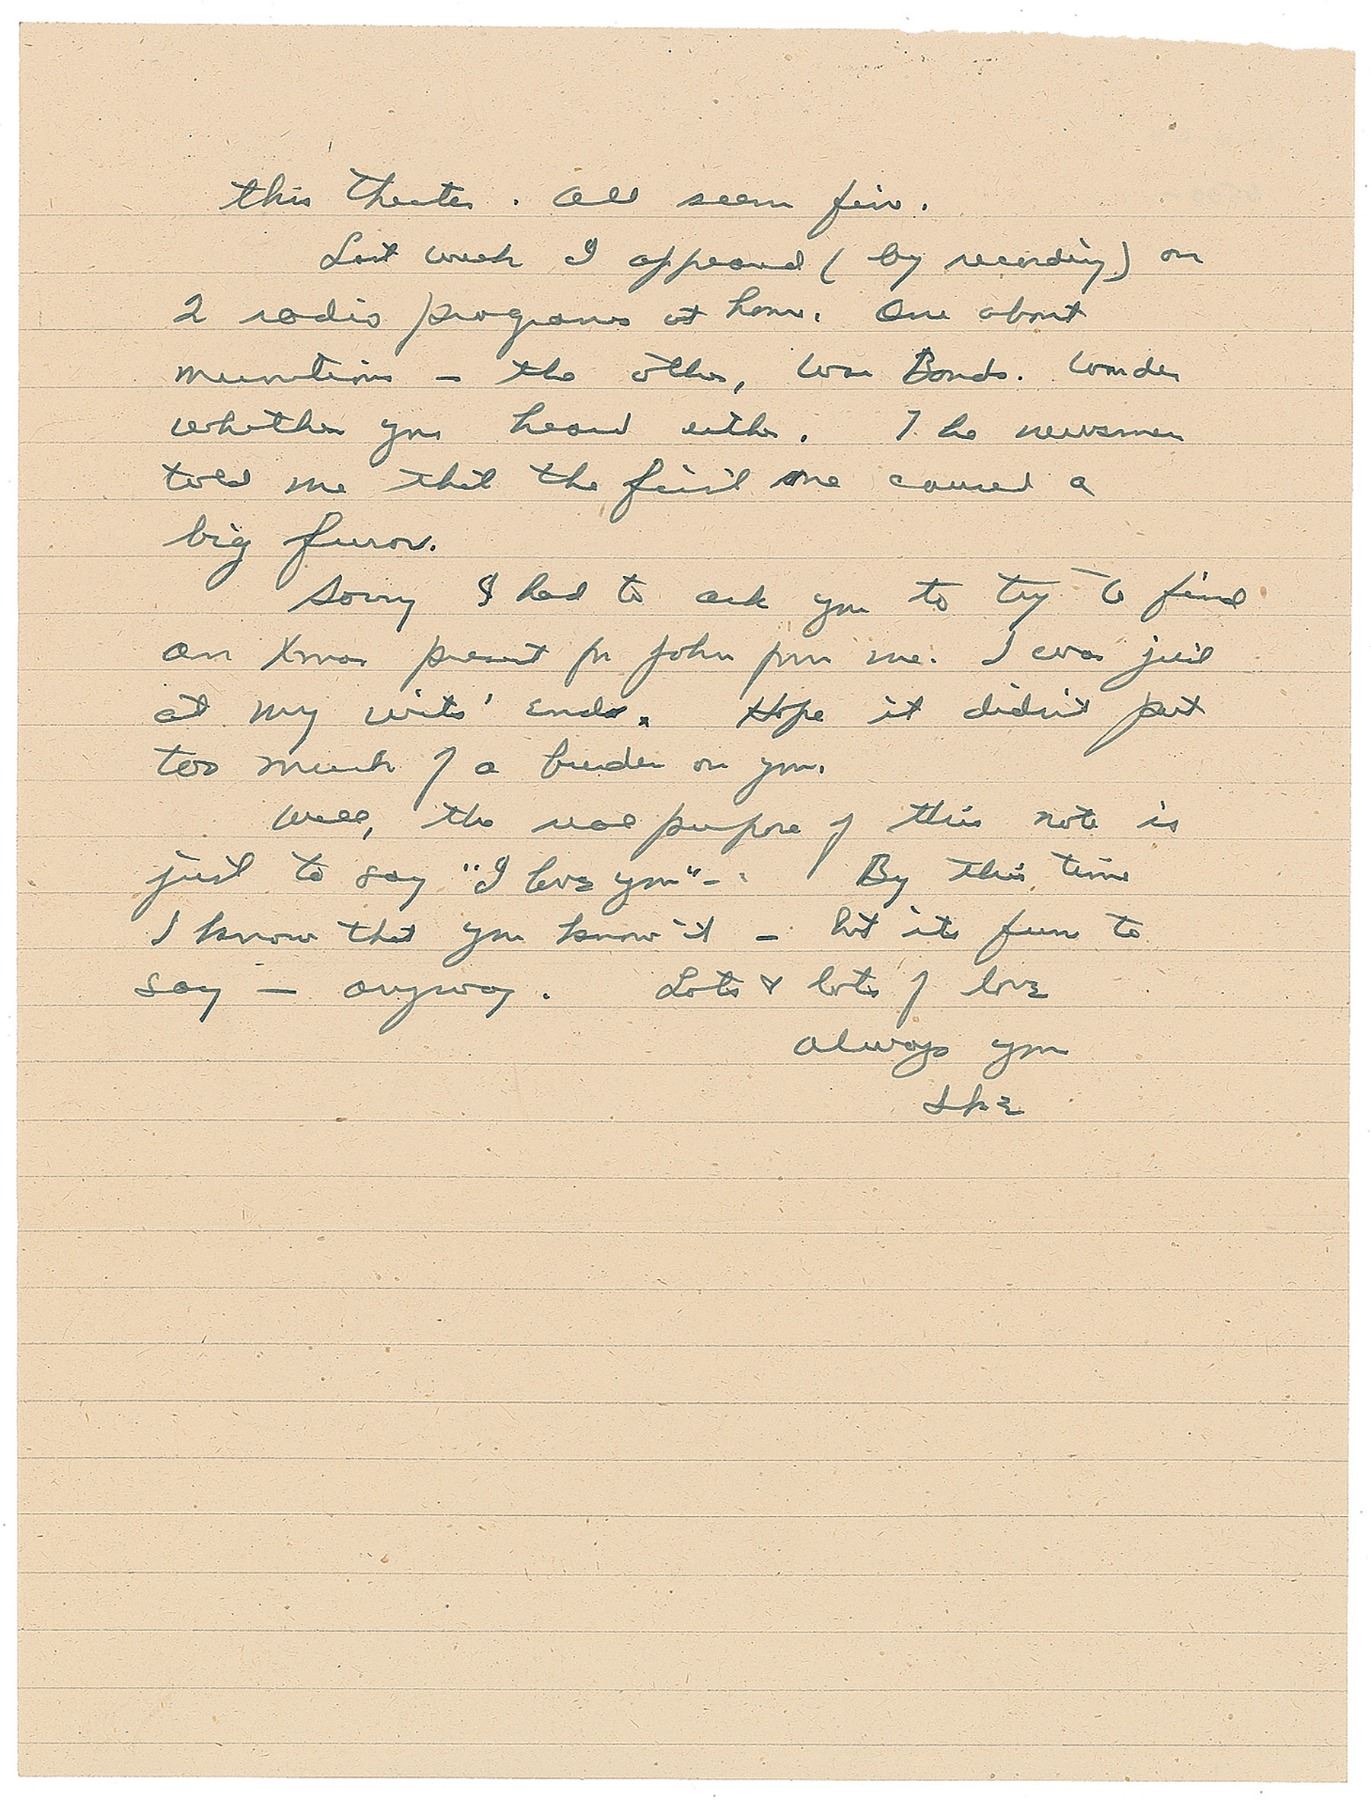 this theater. All seem fine.
Last week I appeared (by recording) on
2 radio programs at home. One about
munitions – the other, War Bonds. Wonder
whether you heard either. The newsmen
told me that the first one caused a
big furor.
Sorry I had to ask you to try to find
an Xmas present for John from me. I was just
at my wits' ends. Hope it didn't put
too much of a burden on you.
Well, the real purpose of this note is
just to say "I love you"–. By this time
I know that you know it – but its fun to
say – anyway. Lots & lots of love
always your
Ike